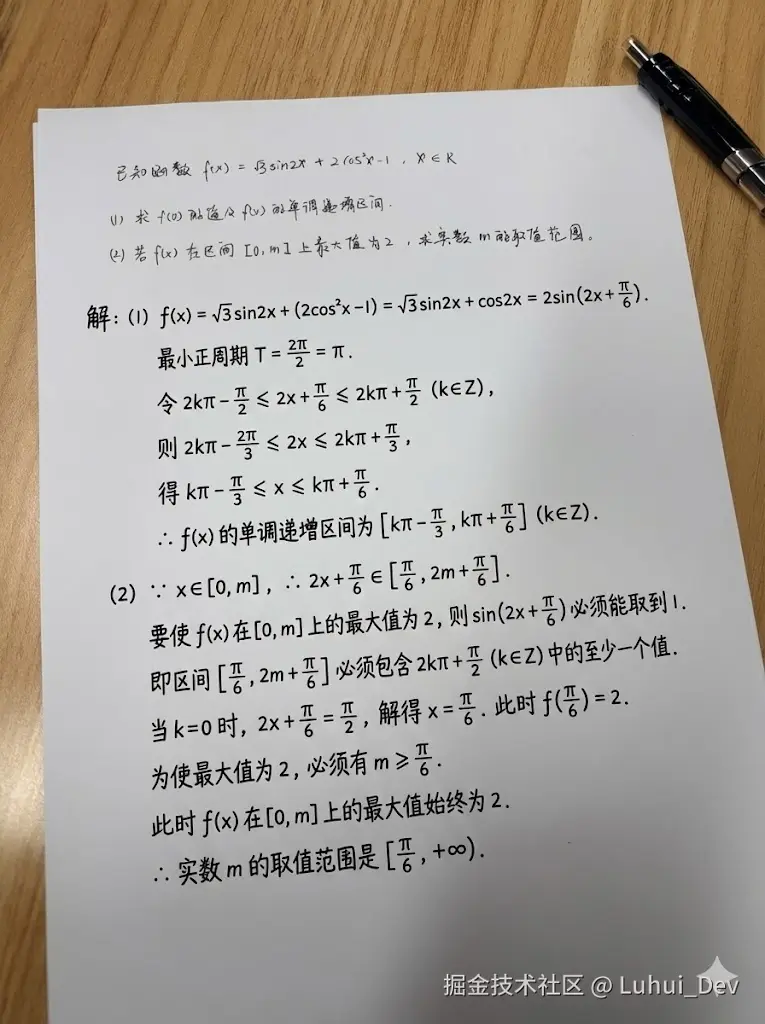 已知函数 f(x) = √3sin2x + 2cos²x-1 , x∈R
(1) 求 f(0) 的值及 f(x) 的单调递增区间.
(2) 若 f(x) 在区间 [0,m] 上最大值为2 , 求实数 m 的取值范围。
解: (1) f(x) = √3sin2x + (2cos²x-1) = √3sin2x + cos2x = 2sin(2x+π/6).
最小正周期 T = 2π/2 = π.
令 2kπ-π/2 ≤ 2x+π/6 ≤ 2kπ+π/2 (k∈Z),
则 2kπ-2π/3 ≤ 2x ≤ 2kπ+π/3,
得 kπ-π/3 ≤ x ≤ kπ+π/6.
∴ f(x) 的单调递增区间为 [kπ-π/3, kπ+π/6] (k∈Z).
(2) ∵ x∈[0,m], ∴ 2x+π/6 ∈ [π/6, 2m+π/6].
要使 f(x) 在 [0,m] 上的最大值为2, 则 sin(2x+π/6) 必须能取到 1.
即区间 [π/6, 2m+π/6] 必须包含 2kπ+π/2 (k∈Z) 中的至少一个值.
当 k=0 时, 2x+π/6 = π/2, 解得 x = π/6. 此时 f(π/6) = 2.
为使最大值为2, 必须有 m ≥ π/6.
此时 f(x) 在 [0,m] 上的最大值始终为2.
∴ 实数 m 的取值范围是 [π/6, +∞).
掘金技术社区 @ Luhui_Dev